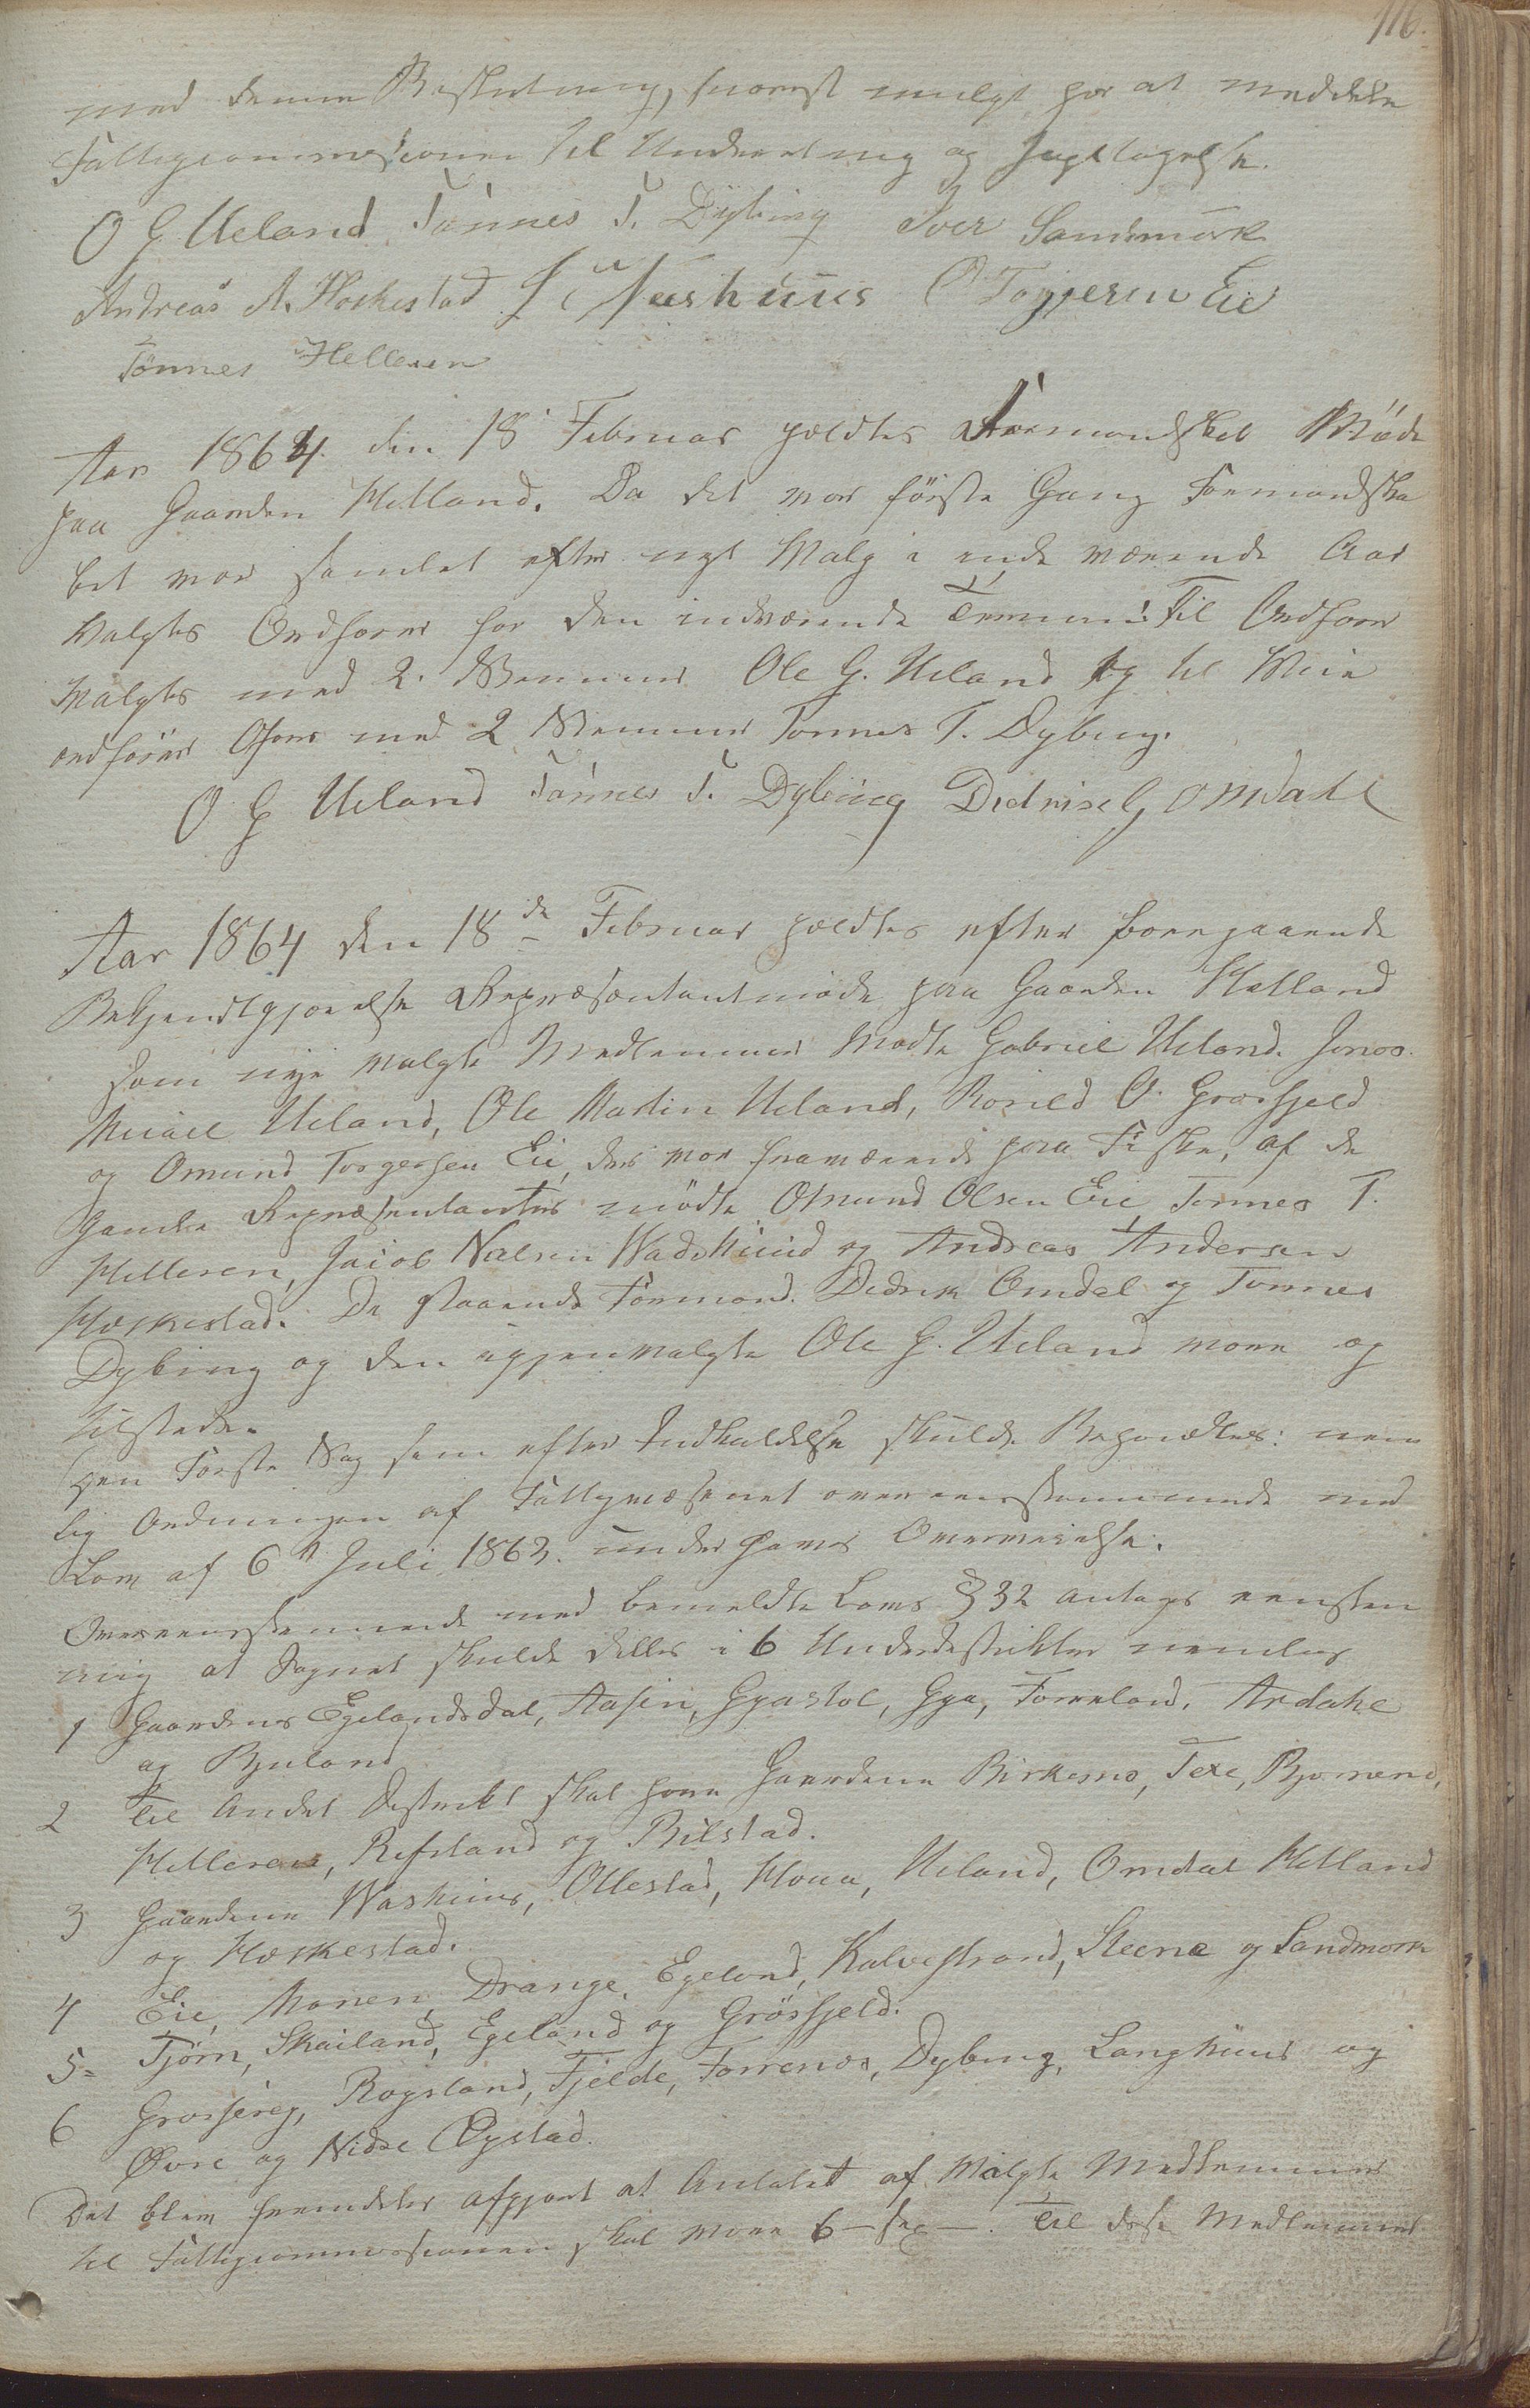 116.
med denne Beslutning, snarest muligt for at meddele
Fattigcommissionen til Underretning og Iagttagelse.
O G Ueland Tönnes T. Dybing Iver Sandsmörk
Andreas A. Hæskestad O Torgersen Eie
Tönnes Helleren
Aar 1864. den 18 Februar holdtes Formandskabs Möde
paa Gaarden Helland. Da det var förste Gang Formandska
bet var samlet efter nyt Valg i inde værende Aar
valgtes Ordförer for den indværende Termin: Til Ordförer
valgtes med 2. Stemmer Ole G. Ueland og til Vice
ordförer med 2 Stemmer Tonnes T. Dybing.
O G Ueland Tönnes T. Dybing Didrik Omdahl
Aar 1864 den 18de Februar holdtes efter foregaaende
Bekjendtgjörelse Repræsentantmöde paa Gaarden Helland
som nye valgte Medlemmer Mödte Gabriel Ueland. Jonas
Ueland, Ole Martin Ueland, Roald O. Grösfjeld
og Omund Torgersen Eie, der var fraværende paa Fiske, af de
gamle Repræsentanter mödte Omund Olsen Eie Tonnes T.
Helleren, Jacob Nilsen Wadshuus og Andreas Andersen
Hæskestad. De staaende Formænd. Didrik Omdal og Tonnes
Dybing og den igjenvalgte Ole G. Ueland vare og
tilstede.
Den Förste Sag som efter Indkaldelse skulde Behandles: nem
lig Ordningen af Fattigvæsenet overeensstemmende med
Lov af 6te Juli 1863. under Overveielse.
Overeensstemmende med bemeldte Lovs § 32 antages eenstem
mig at Sognet skulde delles i 6 Underdistrikter nemlig
1 Gaardene Egelandsdal, Aasen, Gyastöl, Gya, Torreland, Ardahl
og Bjuland
2 Til Andet Distrikt skal höre Gaardene Birkemo, Texe, Bjornemo,
Helleren, Refsland og Bilstad.
3 Gaardene Washuus, Ollestad, Hova, Ueland, Omdal Helland
og Hæskestad.
4 Eie, Monen, Drange, Egeland, Kalvestrand, Steene og Sandmork
5 Tjörn, Skailand, Egeland og Grösfjeld.
6 Grosereg, Rogsland, Fjelde, Torrenes, Dybing, Langhuus og
Övre og Nidre Øgstad.
Det blev fremdeles afgjort at Antalet af Valgte Medlemmer
til Fattigcommissionen skal være 6 – sex –. Til disse Medlemmer